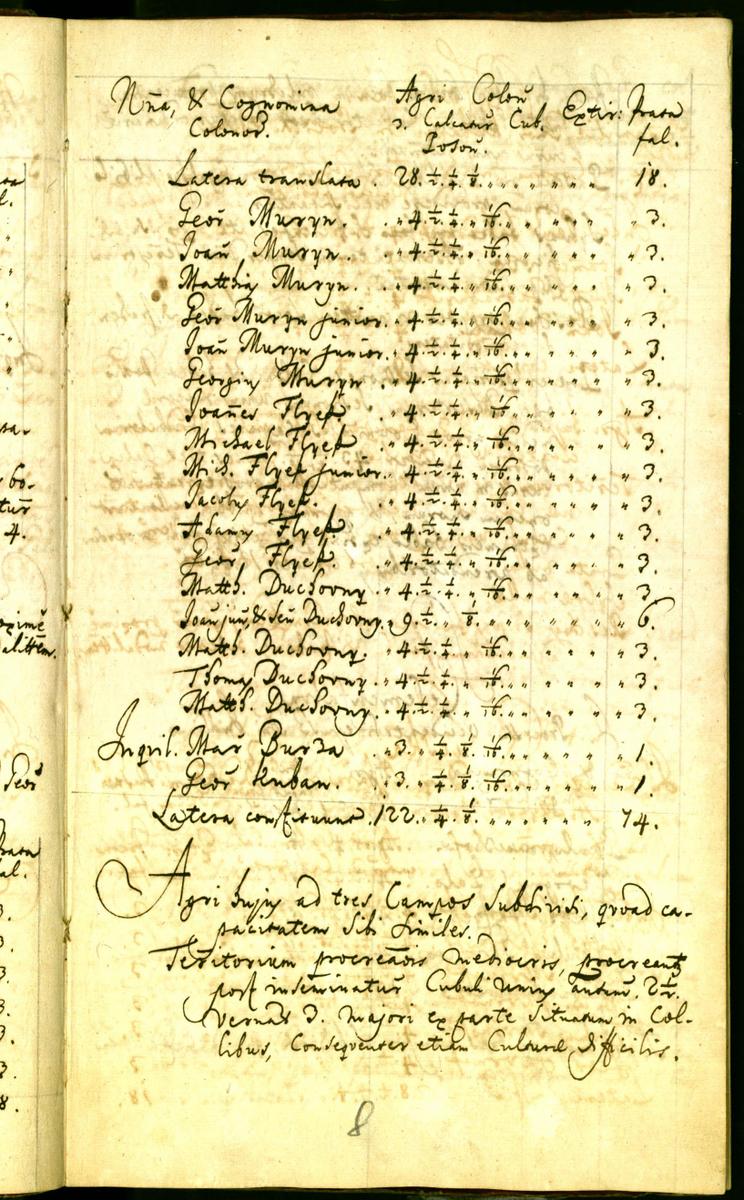 Nña, & Cognomina Agri Coloñ Extir: Prata
Colonor. Calcatur Cub. fal.
Poson.
Latera translata . 28. ½. ¼. ⅛. „ „ „ „ „ „ 18.
Geor Muryn. . „ 4. ½. ¼. „ 1/16. „ „ „ „ „ „ 3.
Ioañ Muryn. . „ 4. ½. ¼. „ 1/16. „ „ „ „ „ „ 3.
Matthiæ Muryn. . „ 4. ½. ¼. „ 1/16. „ „ „ „ „ „ 3.
Geor Muryn junior. „ 4. ½. ¼. „ 1/16. „ „ „ „ „ „ 3.
Ioañ Muryn junior. „ 4. ½. ¼. „ 1/16. „ „ „ „ „ „ 3.
Georgius Muryn . „ 4. ½. ¼. „ 1/16. „ „ „ „ „ „ 3.
Ioañes Flyeß. . „ 4. ½. ¼. „ 1/16. „ „ „ „ „ „ 3.
Michael Flyeß . „ 4. ½. ¼. „ 1/16. „ „ „ „ „ „ 3.
Mich. Flyeß junior. „ 4. ½. ¼. „ 1/16. „ „ „ „ „ „ 3.
Jacobus Flyeß. . „ 4. ½. ¼. „ 1/16. „ „ „ „ „ „ 3.
Adamus Flyeß. . „ 4. ½. ¼. „ 1/16. „ „ „ „ „ „ 3.
Geor Flyeß. . „ 4. ½. ¼. „ 1/16. „ „ „ „ „ „ 3.
Matth. Duchovny . „ 4. ½. ¼. „ 1/16. „ „ „ „ „ „ 3.
Ioañ juñ, & señ Duchovny. „ 9. ½. „ ⅛. „ „ „ „ „ „ 6.
Matth. Duchovny. . „ 4. ½. ¼. „ 1/16. „ „ „ „ „ „ 3.
Thomas Duchovny . „ 4. ½. ¼. „ 1/16. „ „ „ „ „ „ 3.
Matth. Duchovny . „ 4. ½. ¼. „ 1/16. „ „ „ „ „ „ 3.
Inquil. Mar Burza . „ 3. „ ¼. ⅛. 1/16. „ „ „ „ „ „ 1.
Geor Kuban. . „ 3. „ ¼. ⅛. 1/16. „ „ „ „ „ „ 1.
Latera constituunt. 122. „ ¼. ⅛. „ „ „ „ „ „ 74.
Agri hujus ad tres Campos subdivisi, quoad ca-
pacitatem sibi similes.
Territorium mediocris, procreant
post inseminatur Cubuli unius tantum, 2½.
majori ex parte situatum in Col-
libus, Consequenter etiam Culturæ difficilis.
8